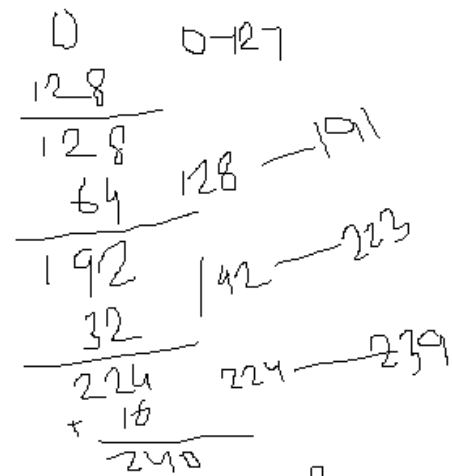 0 0-127
128
128
64 128 — 191
192
32 192 — 223
224 224 — 239
+ 16
240